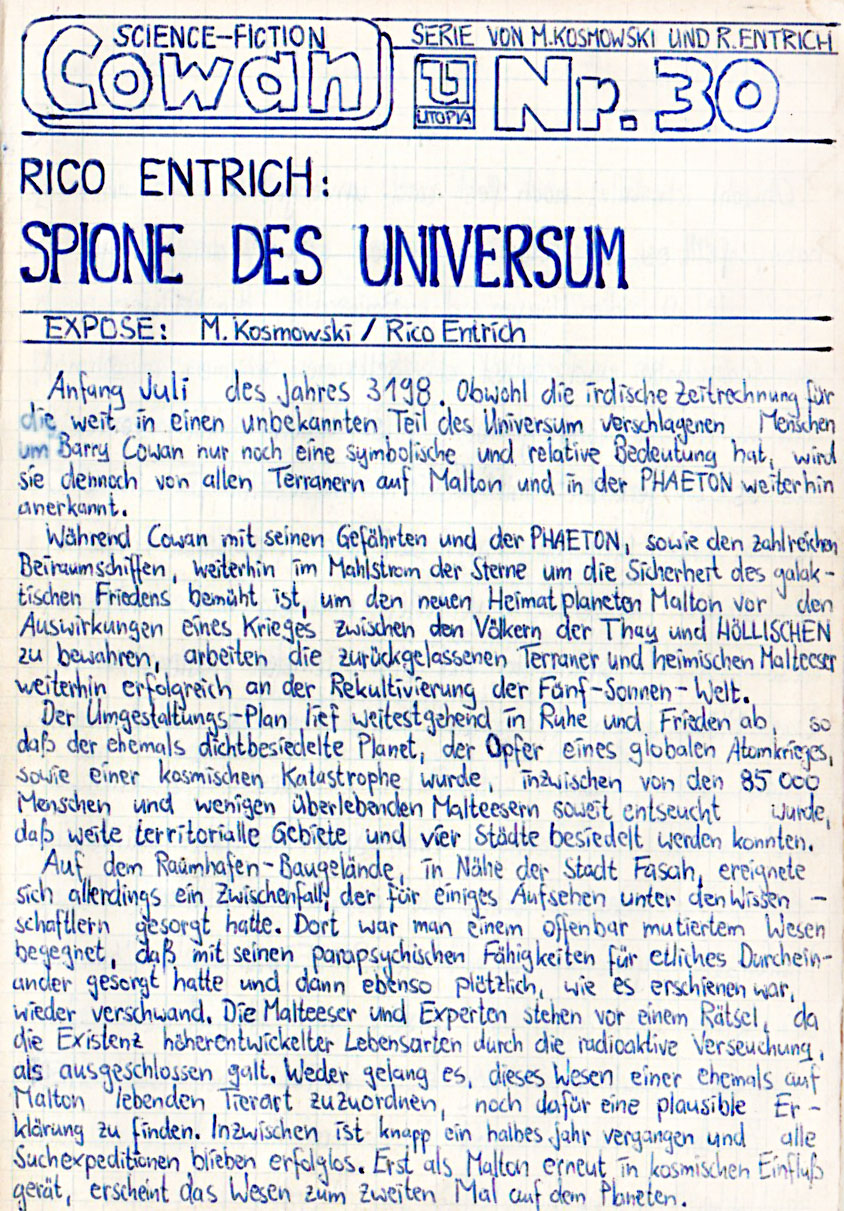 SCIENCE-FICTION
Cowan
SERIE VON M.KOSMOWSKI UND R.ENTRICH
U UTOPIA Nr. 30
RICO ENTRICH:
SPIONE DES UNIVERSUM
EXPOSE: M. Kosmowski / Rico Entrich
Anfang Juli des Jahres 3198. Obwohl die irdische Zeitrechnung für
die weit in einen unbekannten Teil des Universum verschlagenen Menschen
um Barry Cowan nur noch eine symbolische und relative Bedeutung hat, wird
sie dennoch von allen Terranern auf Malton und in der PHAETON weiterhin
anerkannt.
Während Cowan mit seinen Gefährten und der PHAETON, sowie den zahlreichen
Beiraumschiffen, weiterhin im Mahlstrom der Sterne um die Sicherheit des galak-
tischen Friedens bemüht ist, um den neuen Heimatplaneten Malton vor den
Auswirkungen eines Krieges zwischen den Völkern der Thay und HÖLLISCHEN
zu bewahren, arbeiten die zurückgelassenen Terraner und heimischen Malteeser
weiterhin erfolgreich an der Rekultivierung der Fünf-Sonnen-Welt.
Der Umgestaltungs-Plan lief weitestgehend in Ruhe und Frieden ab, so
daß der ehemals dichtbesiedelte Planet, der Opfer eines globalen Atomkrieges,
sowie einer kosmischen Katastrophe wurde, inzwischen von den 85 000
Menschen und wenigen überlebenden Malteesern soweit entseucht wurde,
daß weite territorialle Gebiete und vier Städte besiedelt werden konnten.
Auf dem Raumhafen-Baugelände, in Nähe der Stadt Fasah, ereignete
sich allerdings ein Zwischenfall, der für einiges Aufsehen unter den Wissen-
schaftlern gesorgt hatte. Dort war man einem offenbar mutiertem Wesen
begegnet, daß mit seinen parapsychischen Fähigkeiten für etliches Durchein-
ander gesorgt hatte und dann ebenso plötzlich, wie es erschienen war,
wieder verschwand. Die Malteeser und Experten stehen vor einem Rätsel, da
die Existenz höherentwickelter Lebensarten durch die radioaktive Verseuchung,
als ausgeschlossen galt. Weder gelang es, dieses Wesen einer ehemals auf
Malton lebenden Tierart zuzuordnen, noch dafür eine plausible Er-
klärung zu finden. Inzwischen ist knapp ein halbes Jahr vergangen und alle
Suchexpeditionen blieben erfolglos. Erst als Malton erneut in kosmischen Einfluß
gerät, erscheint das Wesen zum zweiten Mal auf dem Planeten.